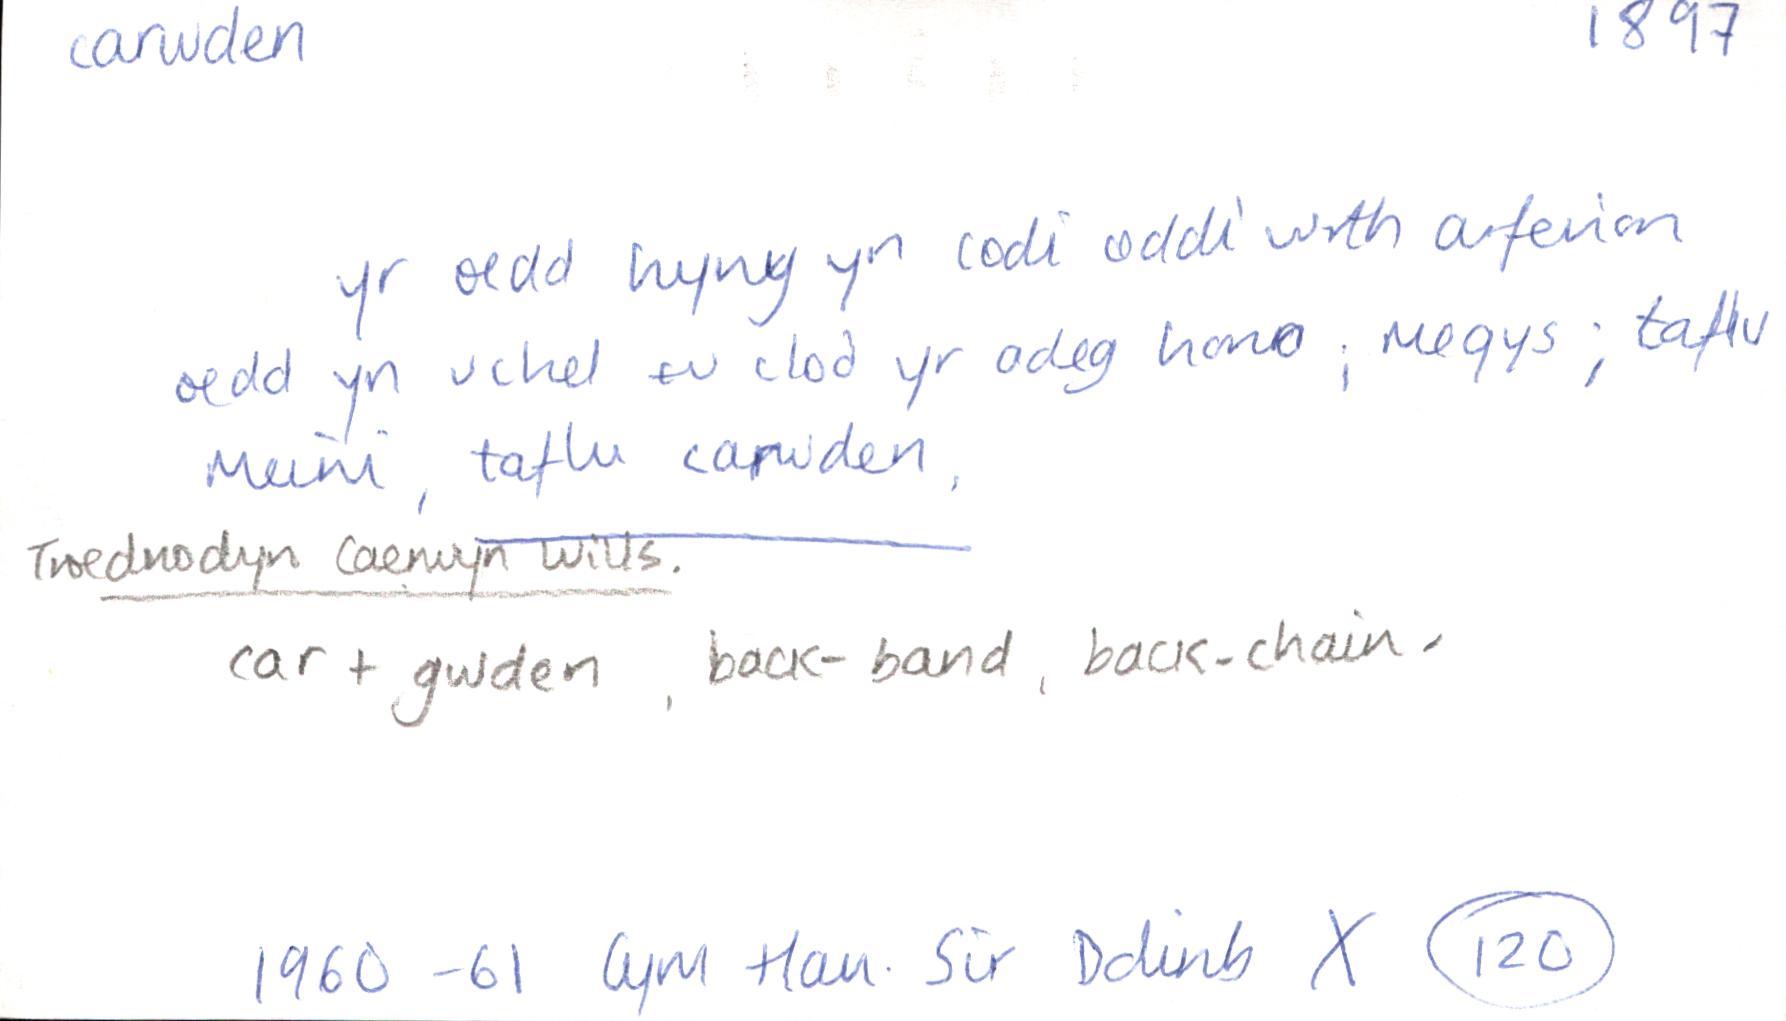 carwden 1897
yr oedd hyny yn codi oddi wrth arferion
oedd yn uchel eu clod yr adeg hono; megys; taflu
meini, taflu carwden,
Troednodyn Caerwyn Wills.
car + gwden, back-band, back-chain.
1960-61 Cym Han. Sir Ddinb X 120